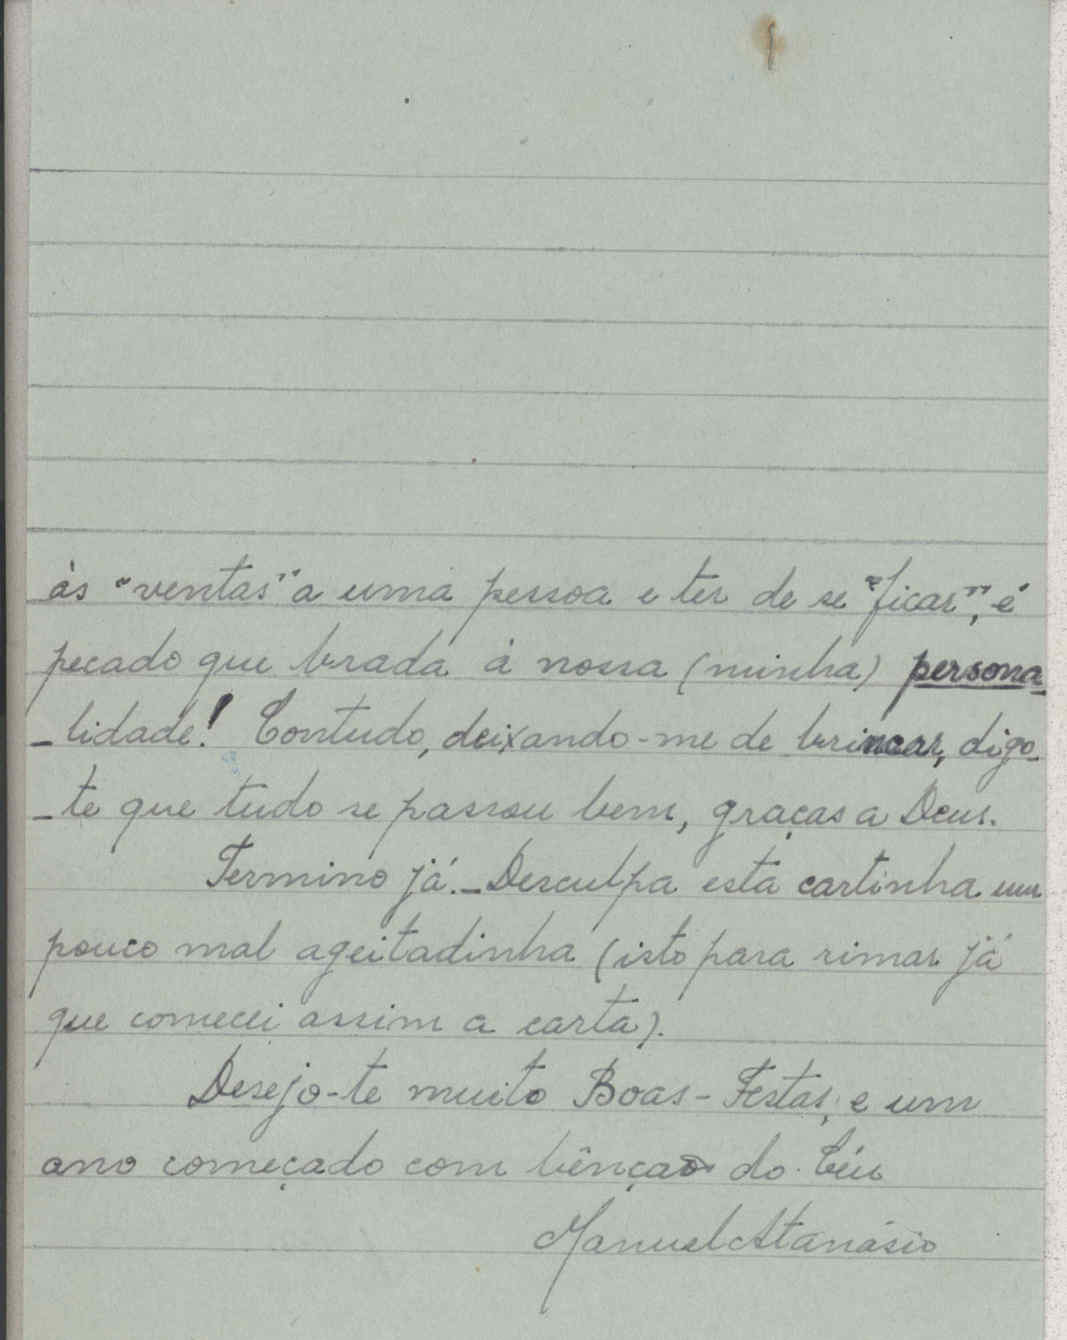 às "ventas" a uma pessoa e ter de se "ficar", é
pecado que brada à nossa (minha) persona
-lidade! Contudo, deixando-me de brincar, digo-
-te que tudo se passou bem, graças a Deus.
Termino já. - Desculpa esta cartinha um
pouco mal ageitadinha (isto para rimar já
que comecei assim a carta).
Desejo-te muito Boas-Festas, e um
ano começado com bênçãos do Céu
Manuel Atanásio